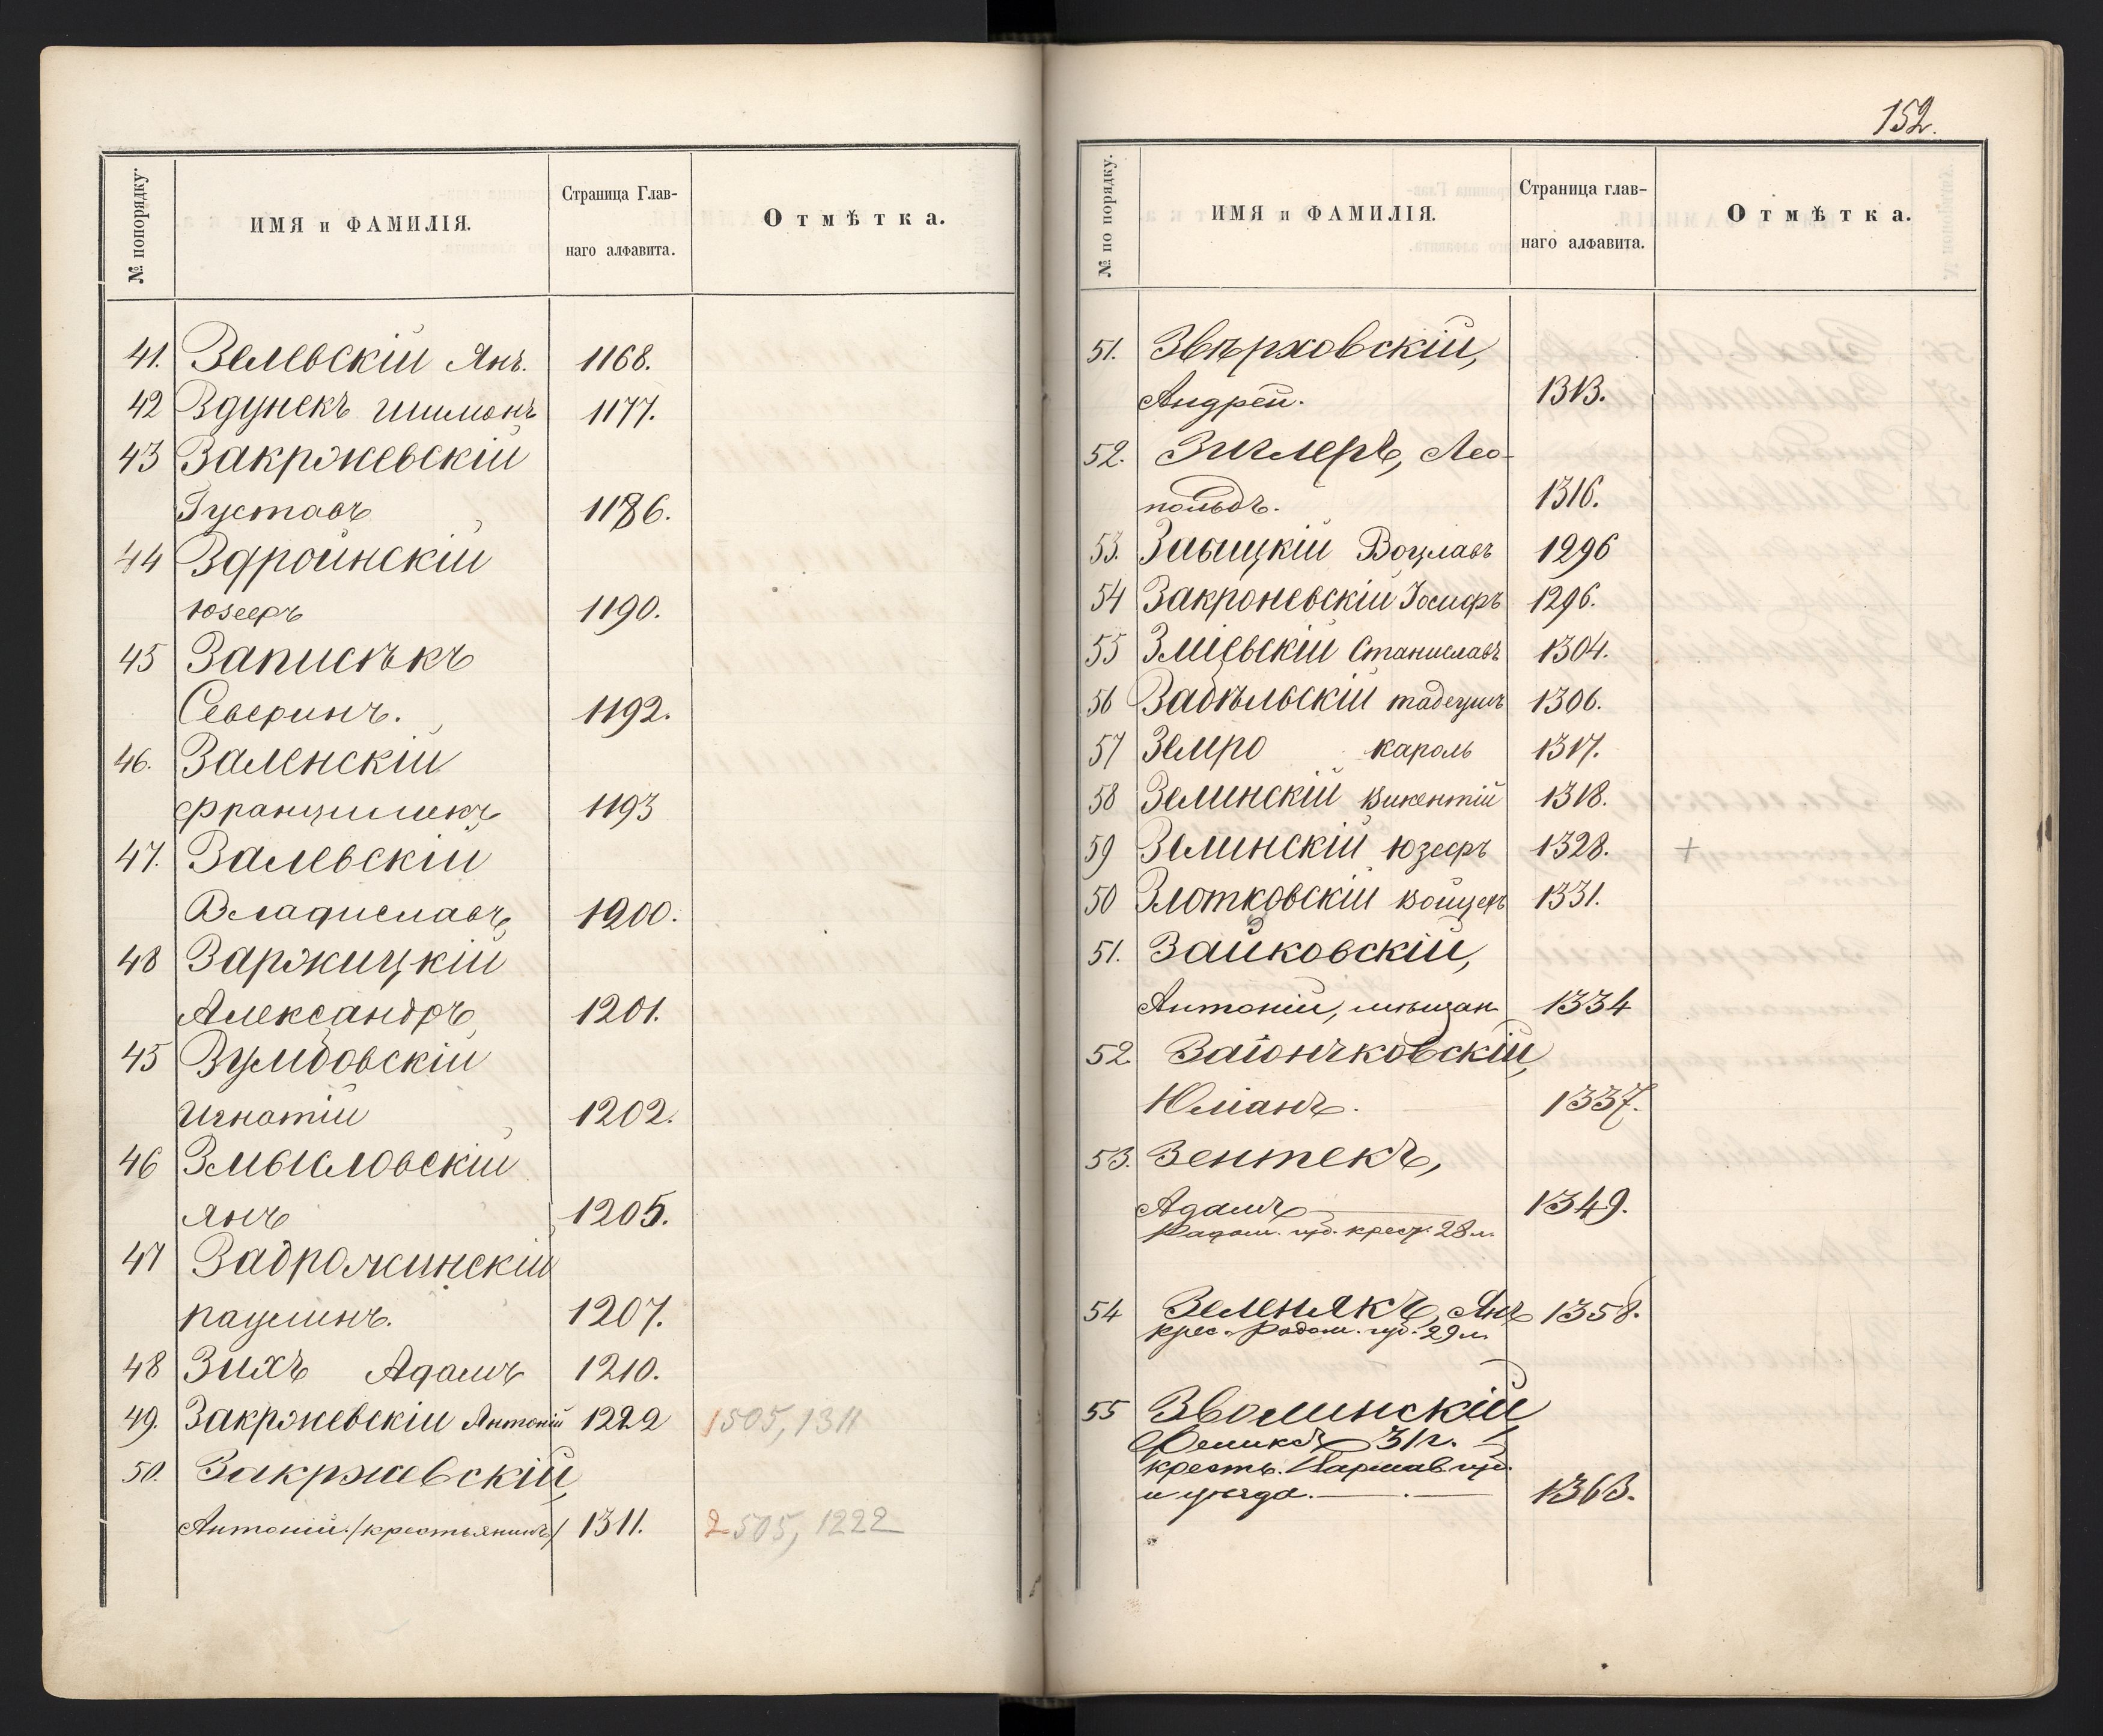 № попорядку.
ИМЯ и ФАМИЛІЯ.
Страница Глав-
наго алфавита.
Отмѣтка.
41. Зелевскій Янъ. 1168.
42 Здунекъ Шимонъ 1177.
43 Закржевскій
Густавъ 1186.
44 Здройнскій
Юзефъ 1190.
45 Записѣкъ
Северинъ. 1192.
46. Заленскій
Францишекъ 1193
47. Залевскій
Владиславъ 1200.
48 Заржицкій
Александръ 1201.
45 Зумбовскій
Игнатій 1202.
46 Змысловскій
Янъ 1205.
47 Задрожинскій
Паулинъ. 1207.
48 Зихъ Адамъ 1210.
49. Закржевскій Антоній 1222 1505, 1311
50. Закржевскій,
Антоній /крестьянинъ/ 1311. 2505, 1222
152.
№ по порядку.
ИМЯ и ФАМИЛІЯ.
Страница глав-
наго алфавита.
Отмѣтка.
51. Звѣрховскій,
Андрей. 1313.
52. Зиглеръ, Лео-
польдъ. 1316.
53. Вацлавъ 1296
54 Закроневскій Іосифъ 1296.
55 Зміевскій Станиславъ 1304.
56 Забѣльскій Тадеушъ 1306.
57 Земро Кароль 1317.
58 Зелинскій Викентій 1318.
59 Зелинскій Юзефъ 1328. +
50 Злотковскій Войцехъ 1331.
51. Зайковскій,
Антоній, мѣщан 1334
52. Заіончковскій,
Юліанъ. 1337.
53. Зентекъ,
Адамъ 1349.
Радом. губ. крест. 28 л.
54 Зеленякъ, Янъ 1358.
крес. Радом. губ. 29 л.
55 Зволинскій
Феликсъ 31 г.
крестъ. Варшав. губ.
и уѣзда. 1363.